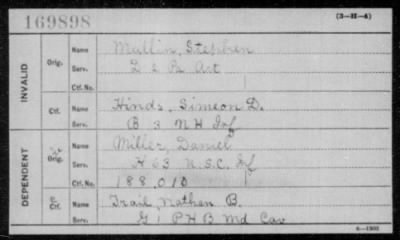 169898
(3—H—4)
INVALID
Orig.
Name Mullin, Stephen
Serv. L 2 Pa Art
Ctf. No.
Ctf.
Name Hinds, Simeon D.
Serv. B 3 N H Inf
DEPENDENT
Orig.
Name Miller, Daniel
Serv. H 63 U.S.C. Inf
Ctf. No. 188,010
Ctf.
Name Trail, Nathen B.
Serv. G 1 P H B Md Cav
6—1903